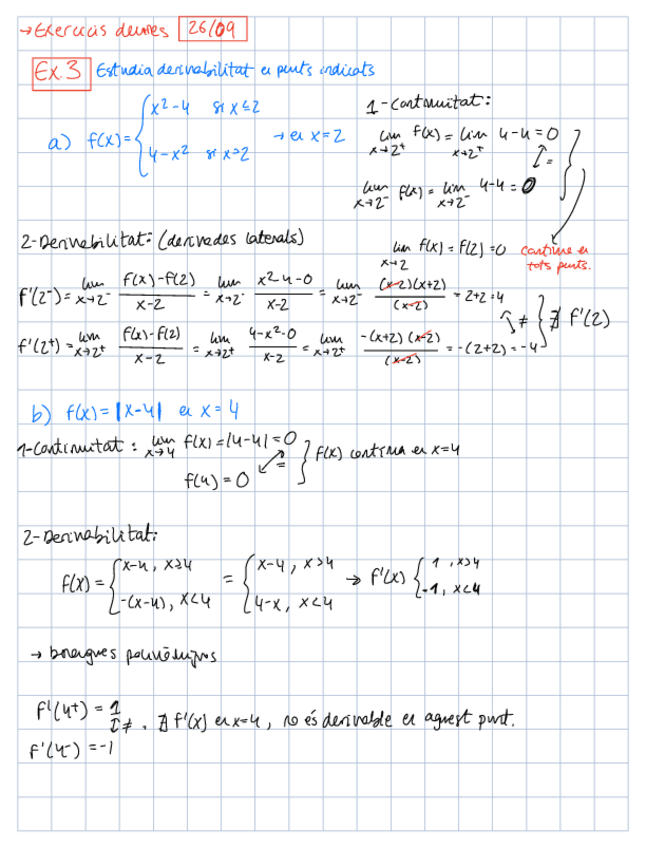 → Exercicis deures 26/09
Ex.3 Estudia derivabilitat en punts indicats
a) f(x) = { x² - 4 si x ≤ 2
4 - x² si x > 2 → en x = 2
1 - Continuitat:
lim x→2⁺ f(x) = lim x→2⁺ 4 - 4 = 0
lim x→2⁻ f(x) = lim x→2⁻ 4 - 4 = 0
=
lim x→2 f(x) = f(2) = 0 contínua en tots punts.
2 - Derivabilitat: (derivades laterals)
f'(2⁻) = lim x→2⁻ (f(x) - f(2))/(x - 2) = lim x→2⁻ (x² - 4 - 0)/(x - 2) = lim x→2⁻ ((x-2)(x+2))/(x-2) = 2+2 = 4
f'(2⁺) = lim x→2⁺ (f(x) - f(2))/(x - 2) = lim x→2⁺ (4 - x² - 0)/(x - 2) = lim x→2⁺ (-(x+2)(x-2))/(x-2) = -(2+2) = -4
≠ } ∄ f'(2)
b) f(x) = |x - 4| en x = 4
1 - Continuitat: lim x→4 f(x) = |4 - 4| = 0
f(4) = 0
= } f(x) contínua en x = 4
2 - Derivabilitat:
f(x) = { x - 4, x ≥ 4 = { x - 4, x > 4 → f'(x) { 1, x > 4
-(x - 4), x < 4 4 - x, x < 4 -1, x < 4
→
f'(4⁺) = 1
≠ . ∄ f'(x) en x = 4, no és derivable en aquest punt.
f'(4⁻) = -1